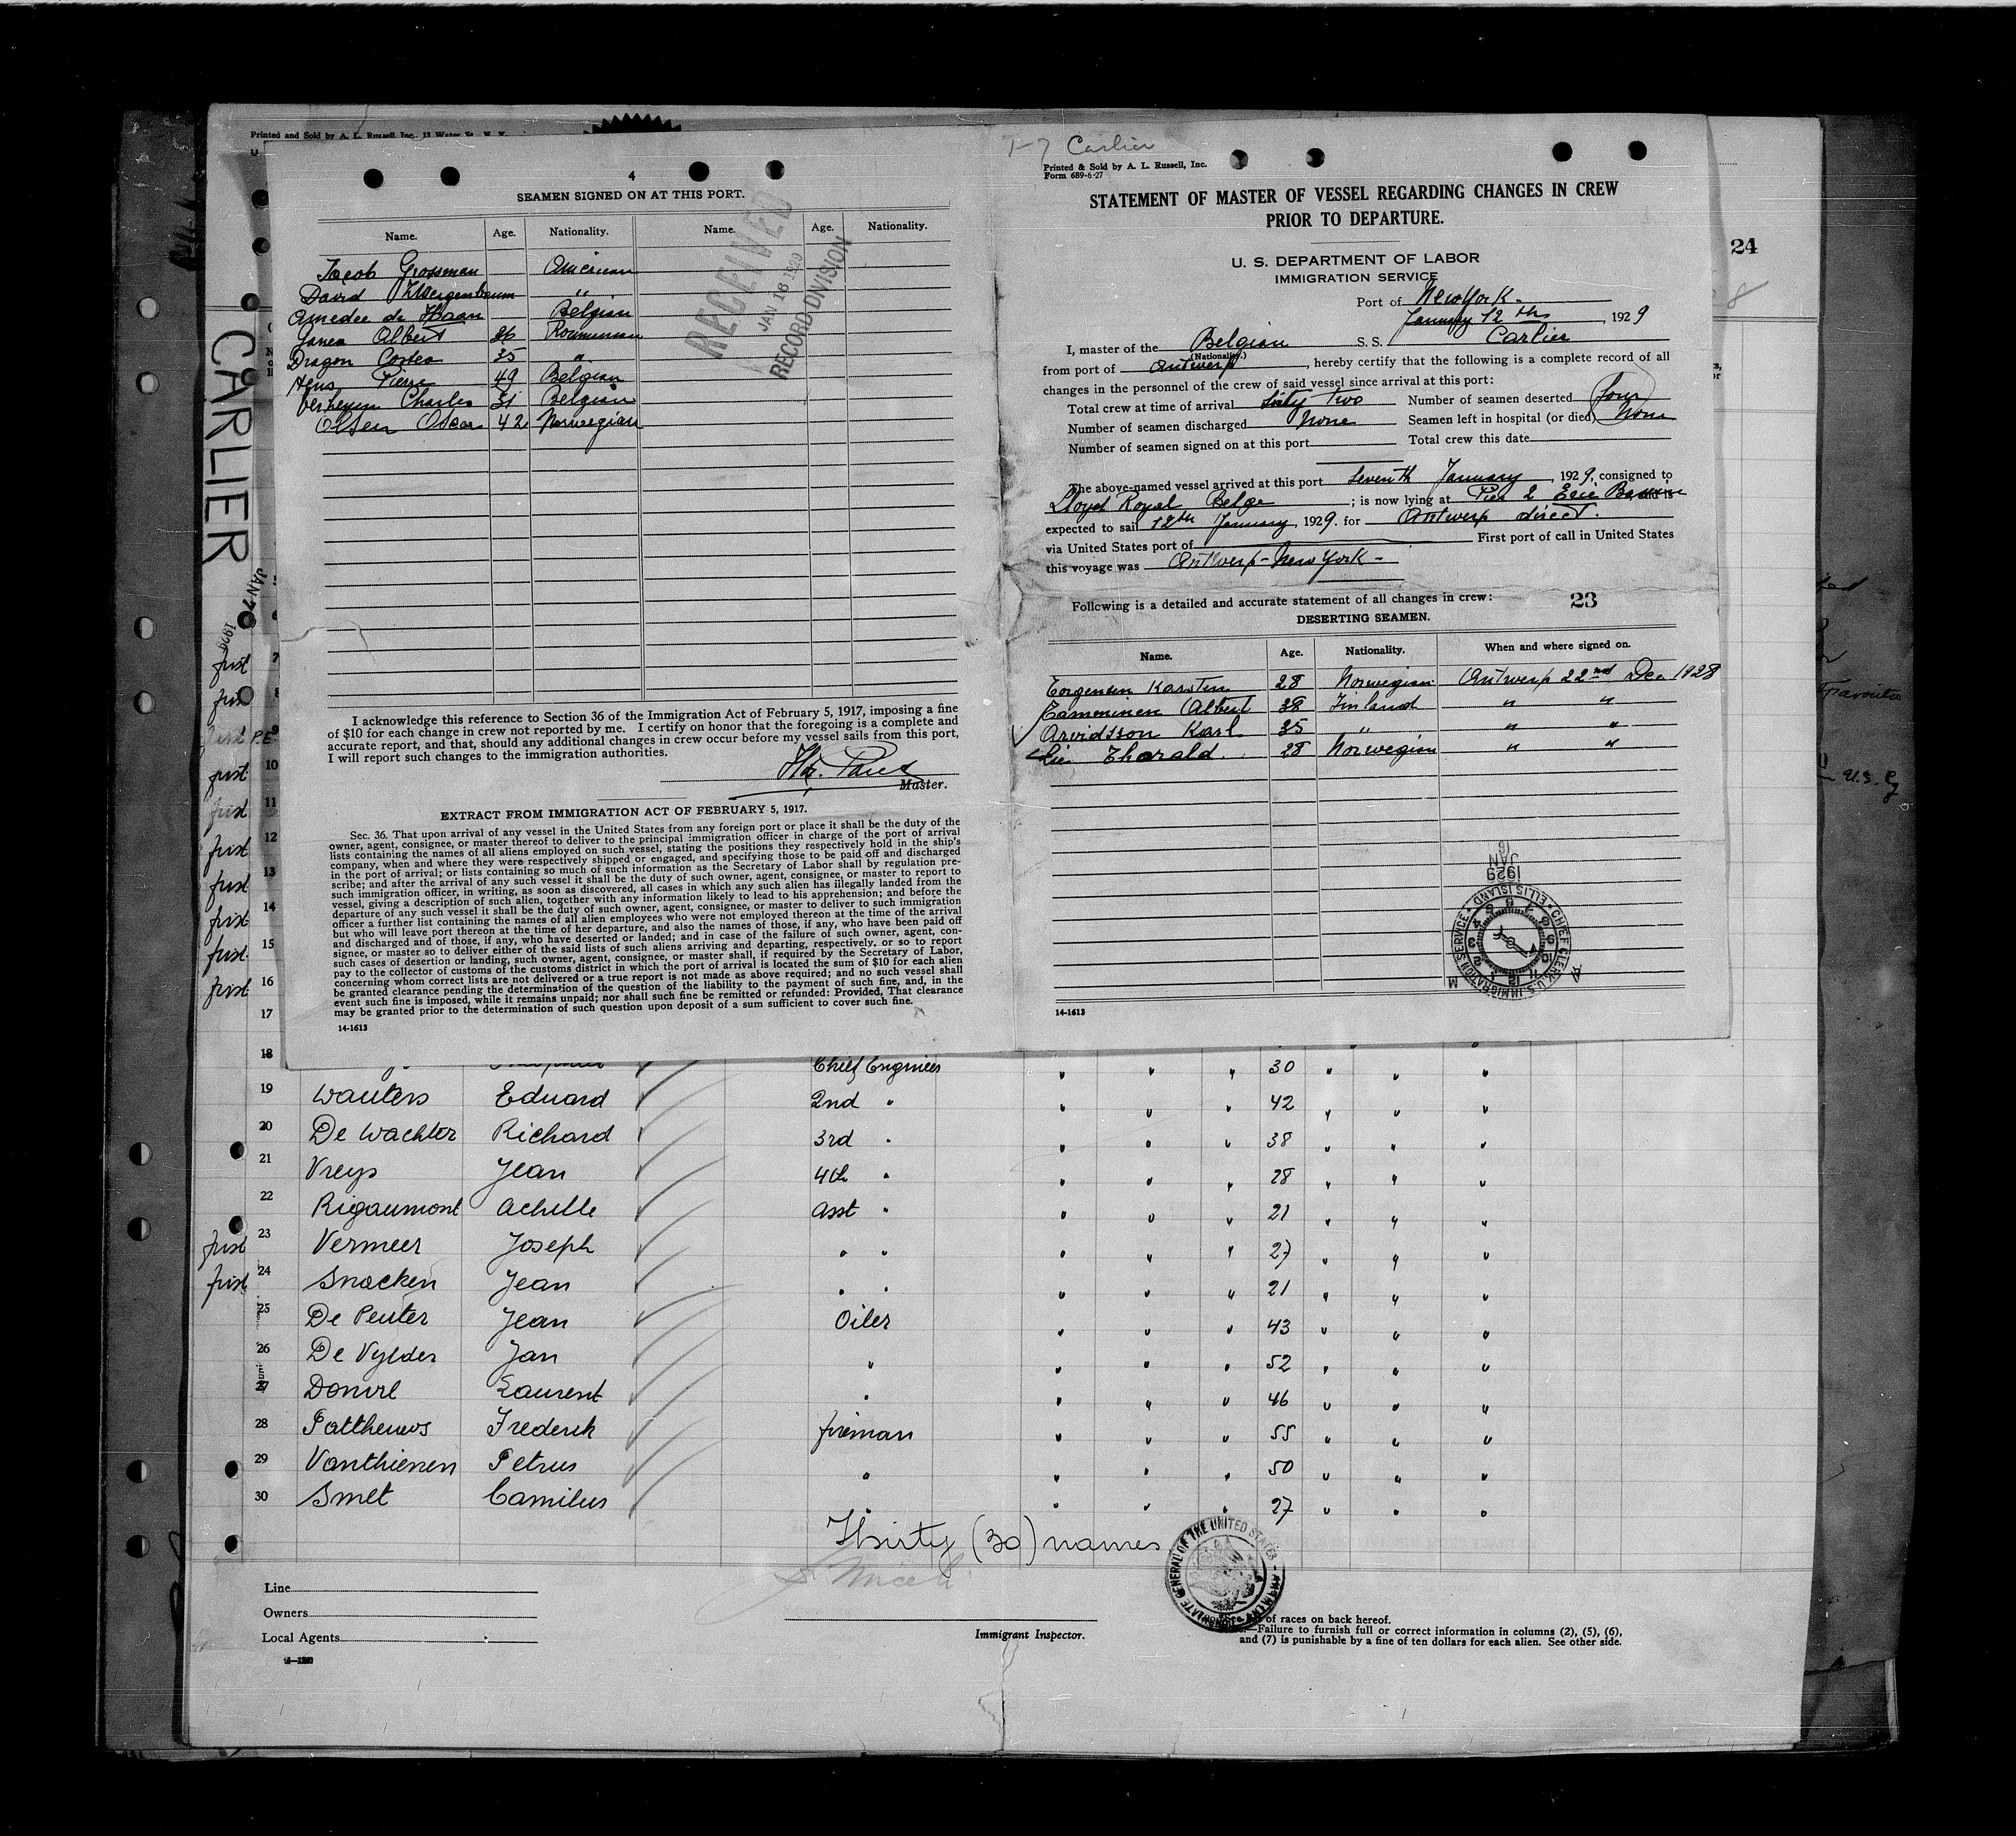 Printed and Sold by A. L. Russell, Inc., 13 Water St., N. Y.
CARLIER
JAN 7 1929
4
SEAMEN SIGNED ON AT THIS PORT.
Name. Age. Nationality. Name. Age. Nationality.
Jacob Grossman American
David Zweigenbaum "
Amedee de Haan Belgian
Ganea Albert 26 Roumanian
Dragon Costea 35 "
Hens Pierre 49 Belgian
Charles 31 Belgian
Olsen Oscar 42 Norwegian
RECEIVED
JAN 16 1929
RECORD DIVISION
I acknowledge this reference to Section 36 of the Immigration Act of February 5, 1917, imposing a fine
of $10 for each change in crew not reported by me. I certify on honor that the foregoing is a complete and
accurate report, and that, should any additional changes in crew occur before my vessel sails from this port,
I will report such changes to the immigration authorities.
Master.
EXTRACT FROM IMMIGRATION ACT OF FEBRUARY 5, 1917.
Sec. 36. That upon arrival of any vessel in the United States from any foreign port or place it shall be the duty of the
owner, agent, consignee, or master thereof to deliver to the principal immigration officer in charge of the port of arrival
lists containing the names of all aliens employed on such vessel, stating the positions they respectively hold in the ship's
company, when and where they were respectively shipped or engaged, and specifying those to be paid off and discharged
in the port of arrival; or lists containing so much of such information as the Secretary of Labor shall by regulation pre-
scribe; and after the arrival of any such vessel it shall be the duty of such owner, agent, consignee, or master to report to
such immigration officer, in writing, as soon as discovered, all cases in which any such alien has illegally landed from the
vessel, giving a description of such alien, together with any information likely to lead to his apprehension; and before the
departure of any such vessel it shall be the duty of such owner, agent, consignee, or master to deliver to such immigration
officer a further list containing the names of all alien employees who were not employed thereon at the time of the arrival
but who will leave port thereon at the time of her departure, and also the names of those, if any, who have been paid off
and discharged and of those, if any, who have deserted or landed; and in case of the failure of such owner, agent, con-
signee, or master so to deliver either of the said lists of such aliens arriving and departing, respectively, or so to report
such cases of desertion or landing, such owner, agent, consignee, or master shall, if required by the Secretary of Labor,
pay to the collector of customs of the customs district in which the port of arrival is located the sum of $10 for each alien
concerning whom correct lists are not delivered or a true report is not made as above required; and no such vessel shall
be granted clearance pending the determination of the question of the liability to the payment of such fine, and, in the
event such fine is imposed, while it remains unpaid; nor shall such fine be remitted or refunded: Provided, That clearance
may be granted prior to the determination of such question upon deposit of a sum sufficient to cover such fine.
14-1613
1-7 Carlier
Printed & Sold by A. L. Russell, Inc.
Form 689-6-27
STATEMENT OF MASTER OF VESSEL REGARDING CHANGES IN CREW
PRIOR TO DEPARTURE.
U. S. DEPARTMENT OF LABOR
IMMIGRATION SERVICE
Port of New York.
January 12 th, 1929
I, master of the Belgian S. S. Carlier
(Nationality.)
from port of Antwerp, hereby certify that the following is a complete record of all
changes in the personnel of the crew of said vessel since arrival at this port:
Total crew at time of arrival Sixty Two Number of seamen deserted four
Number of seamen discharged None Seamen left in hospital (or died) None
Number of seamen signed on at this port Total crew this date
The above-named vessel arrived at this port Seventh January, 1929, consigned to
Lloyd Royal Belge; is now lying at Pier 2 Erie Bassin
expected to sail 12th January, 1929. for Antwerp direct.
via United States port of First port of call in United States
this voyage was Antwerp - New York -
Following is a detailed and accurate statement of all changes in crew:
23
DESERTING SEAMEN.
Name. Age. Nationality. When and where signed on.
Torgensen Karsten 28 Norwegian Antwerp 22nd Dec 1928
Tamminen Albert 38 Finland " "
Arvidsson Karl 35 " " "
Lie Thorald. 28 Norwegian " "
16 JAN 1929
CHIEF CLERK U.S. IMMIGRATION SERVICE ELLIS ISLAND
14-1613
24
first 7
first 8
9
first 10
first 11
first 12
first 13
first 14
first 15
first 16
17
18 Chief Engineer " " " 30 " " "
19 Wauters Eduard 2nd " " " " 42 " " "
20 De Wachter Richard 3rd " " " " 38 " " "
21 Vreys Jean 4th " " " " 28 " " "
22 Rigaumont Achille Asst " " " " 21 " " "
first 23 Vermeer Joseph " " " " " 27 " " "
first 24 Snacken Jean " " " " " 21 " " "
25 De Peuter Jean Oiler " " " 43 " " "
26 De Vylder Jan " " " " 52 " " "
27 Laurent " " " " 46 " " "
28 Patthenws Frederik fireman " " " 55 " " "
29 Vanthienen Petrus " " " " 50 " " "
30 Smet Camilus " " " " 27 " " "
Thirty (30) names
Line
Owners
Local Agents
Immigrant Inspector.
of races on back hereof.
—Failure to furnish full or correct information in columns (2), (5), (6),
and (7) is punishable by a fine of ten dollars for each alien. See other side.